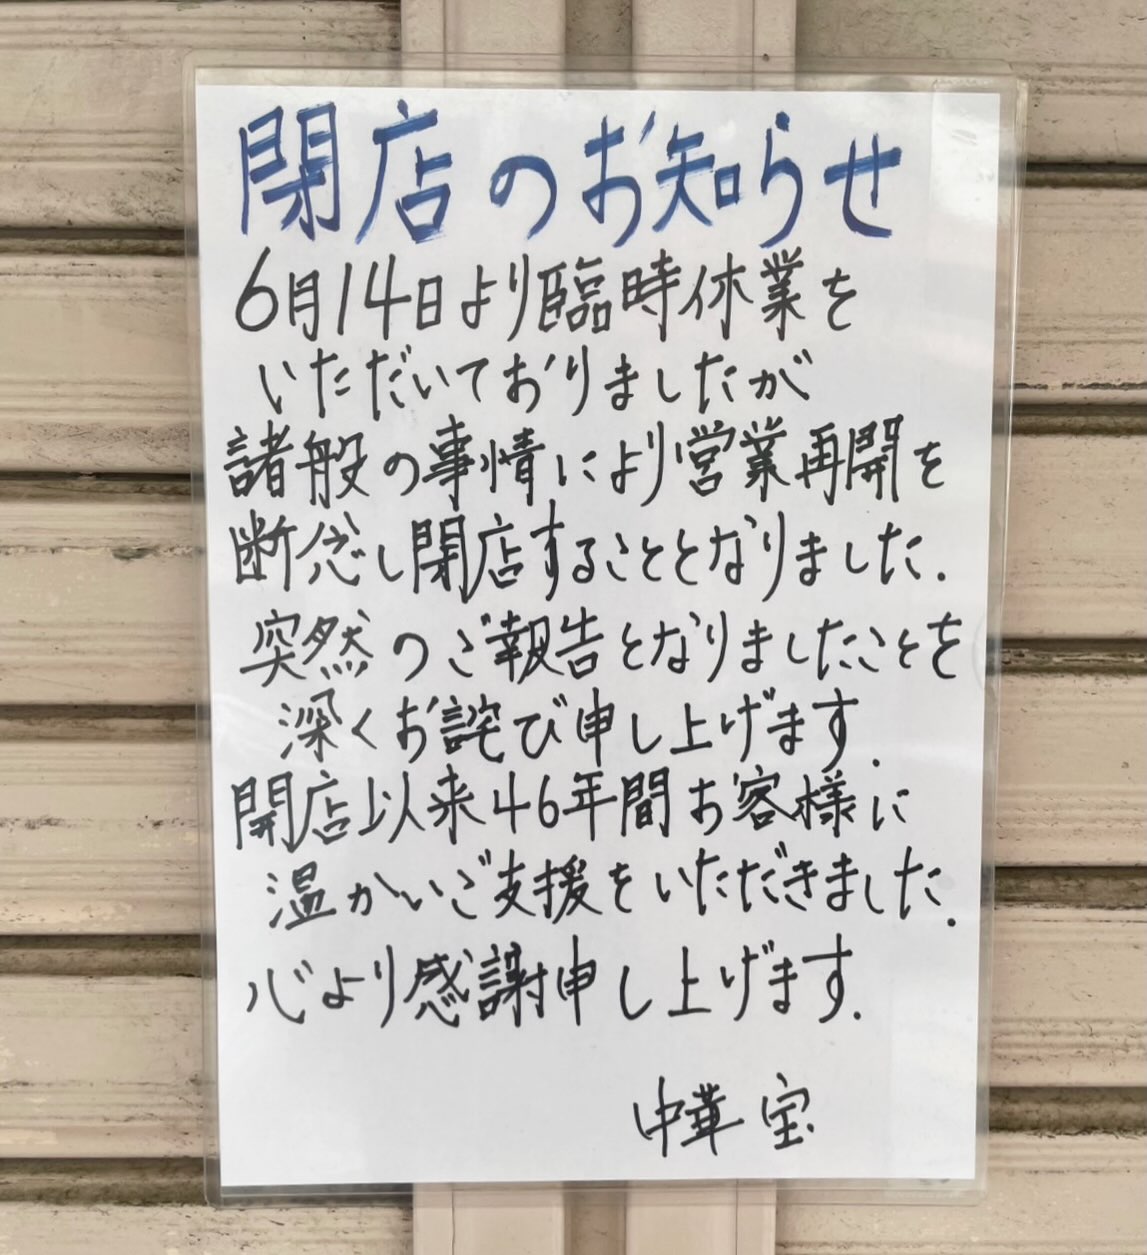 閉店のお知らせ
6月14日より臨時休業を
いただいておりましたが
諸般の事情により営業再開を
断念し閉店することとなりました.
突然のご報告となりましたことを
深くお詫び申し上げます.
開店以来46年間お客様に
温かいご支援をいただきました.
心より感謝申し上げます.
中華 宝